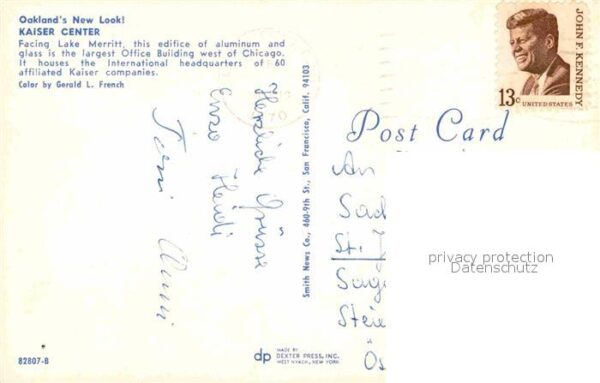 Oakland's New Look!
KAISER CENTER
Facing Lake Merritt, this edifice of aluminum and
glass is the largest Office Building west of Chicago.
It houses the International headquarters of 60
affiliated Kaiser companies.
Color by Gerald L. French
Herzliche Grüsse
Heidi
82807-B
Smith News Co., 460-9th St., San Francisco, Calif. 94103
dp
MADE BY
DEXTER PRESS, INC.
WEST NYACK, NEW YORK
JOHN F. KENNEDY
13c
UNITED STATES
Post Card
An
St.
privacy protection
Datenschutz